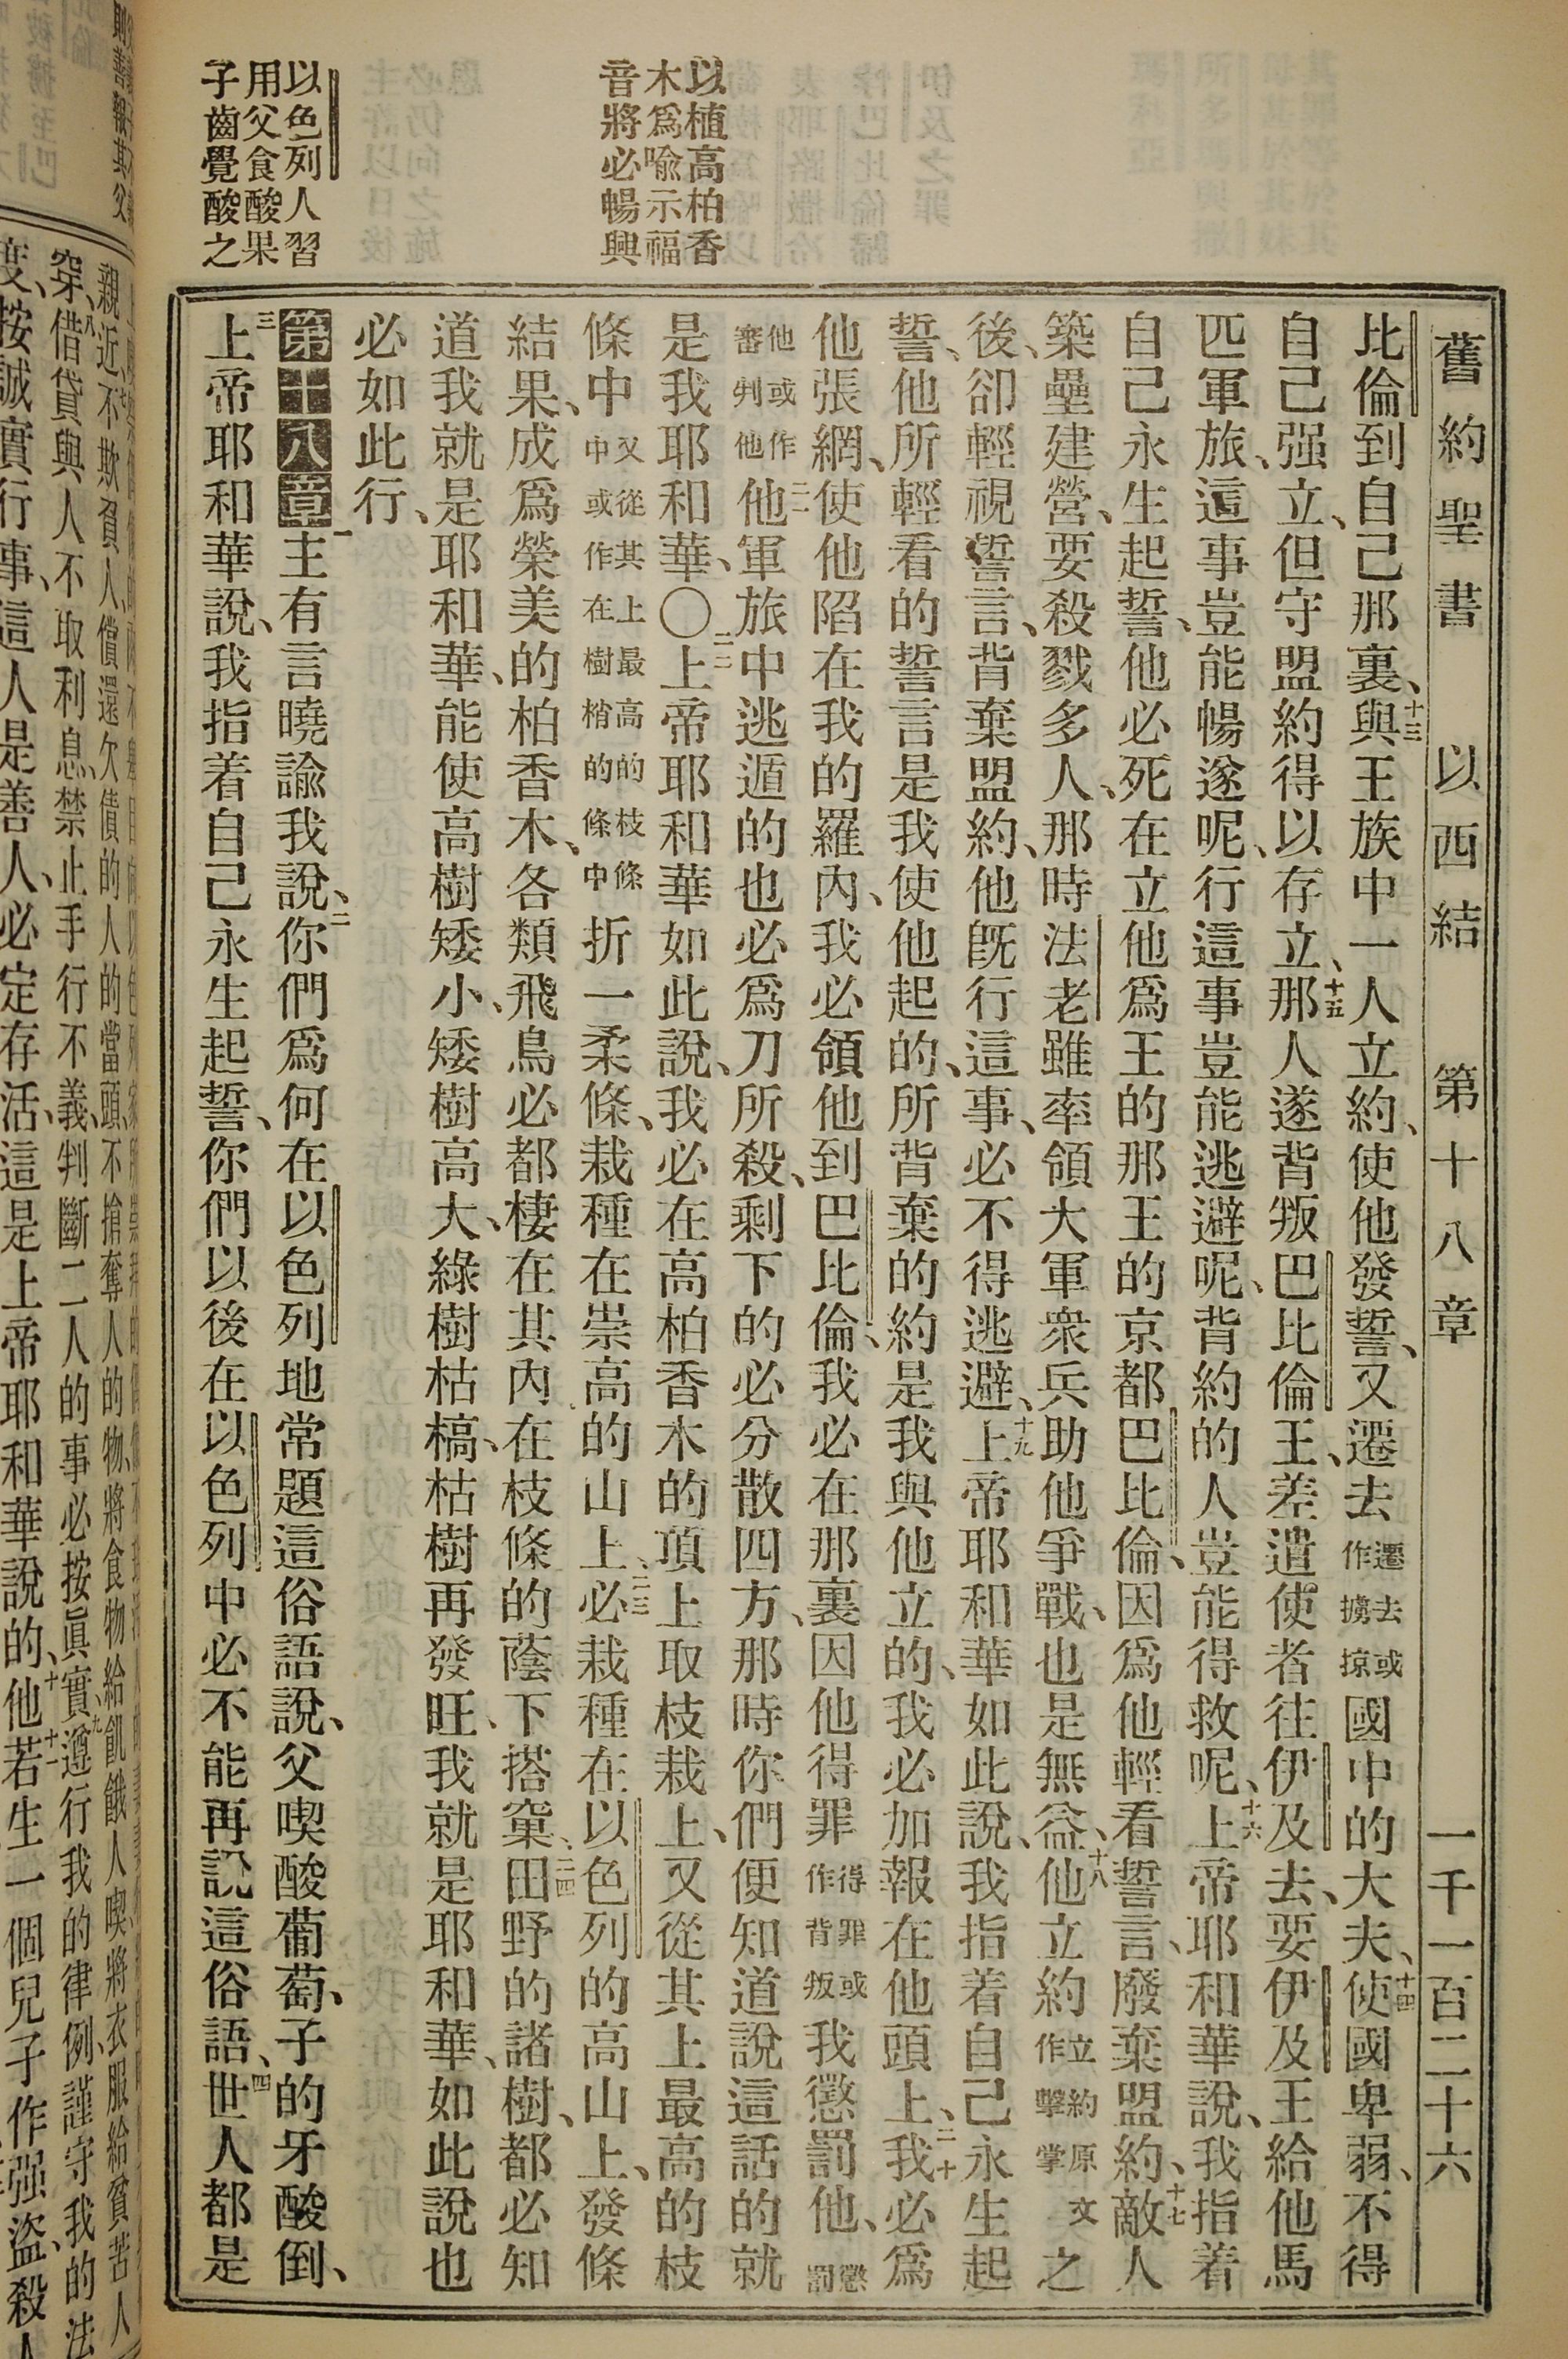 舊約聖書 以西結 第十八章 一千一百二十六
以植高柏香
木爲喻示福
音將必暢興
以色列人習
用父食酸果
子齒覺酸之
比倫到自己那裏、十三與王族中一人立約、使他發誓、又遷去遷去或作擄掠國中的大夫、十四使國卑弱、不得
自己强立、但守盟約得以存立、十五那人遂背叛巴比倫王、差遣使者往伊及去、要伊及王給他馬
匹軍旅、這事豈能暢遂呢、行這事豈能逃避呢、背約的人豈能得救呢、十六上帝耶和華說、我指着
自己永生起誓、他必死在立他爲王的那王的京都巴比倫、因爲他輕看誓言、廢棄盟約、十七敵人
築壘建營、要殺戮多人、那時法老雖率領大軍衆兵助他爭戰、也是無益、十八他立約立約原文作擊掌之
後、卻輕視誓言、背棄盟約、他旣行這事、必不得逃避、十九上帝耶和華如此說、我指着自己永生起
誓、他所輕看的誓言是我使他起的、所背棄的約是我與他立的、我必加報在他頭上、二十我必爲
他張網、使他陷在我的羅內、我必領他到巴比倫、我必在那裏因他得罪得罪或作背叛我懲罰他、懲罰
他或作審判他二一他軍旅中逃遁的也必爲刀所殺、剩下的必分散四方、那時你們便知道說這話的就
是我耶和華、〇二二上帝耶和華如此說、我必在高柏香木的頂上取枝栽上、又從其上最高的枝
條中又從其上最高的枝條中或作在樹梢的條中折一柔條、栽種在崇高的山上、二三必栽種在以色列的高山上、發條
結果、成爲榮美的柏香木、各類飛鳥必都棲在其內、在枝條的蔭下搭窠、二四田野的諸樹、都必知
道我就是耶和華、能使高樹矮小、矮樹高大、綠樹枯槁、枯樹再發旺、我就是耶和華、如此說也
必如此行、
第十八章一主有言曉諭我說、二你們爲何在以色列地常題這俗語說、父喫酸葡萄、子的牙酸倒、
三上帝耶和華說、我指着自己永生起誓、你們以後在以色列中必不能再說這俗語、四世人都是